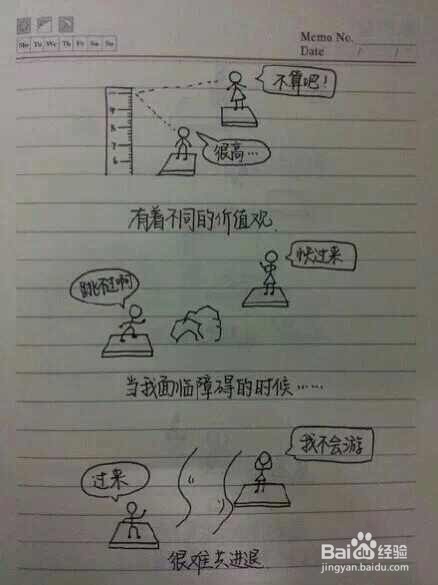 Memo No.
Mo Tu We Th Fr Sa Su
Date / /
不算吧!
很高…
有着不同的价值观
快过来
跳不过啊
当我面临障碍的时候……
我不会游
过来
很难共进退
Baidu经验
jingyan.baidu.com